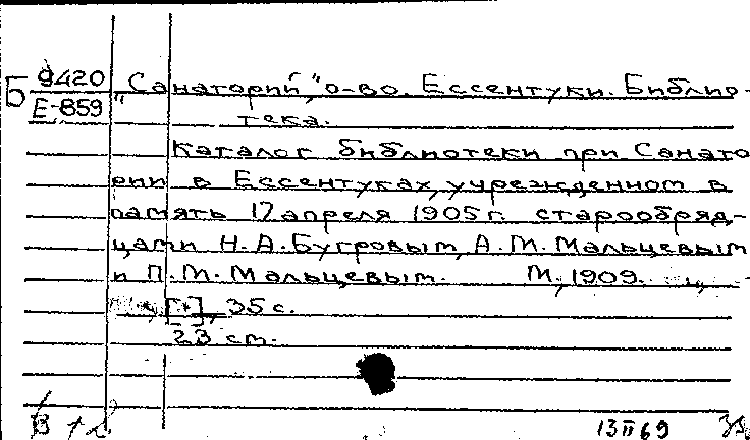 Б 9420
Е-859
"Санаторий," о-во. Ессентуки. Библио-
тека.
Каталог библиотеки при Санато
рии в Ессентуках, учрежденном в
память 17 апреля 1905 г. старообряд-
цами Н. А. Бугровым, А. М. Мальцевым
и П. М. Мальцевым. М., 1909.
35 с.
23 см.
13 II 69